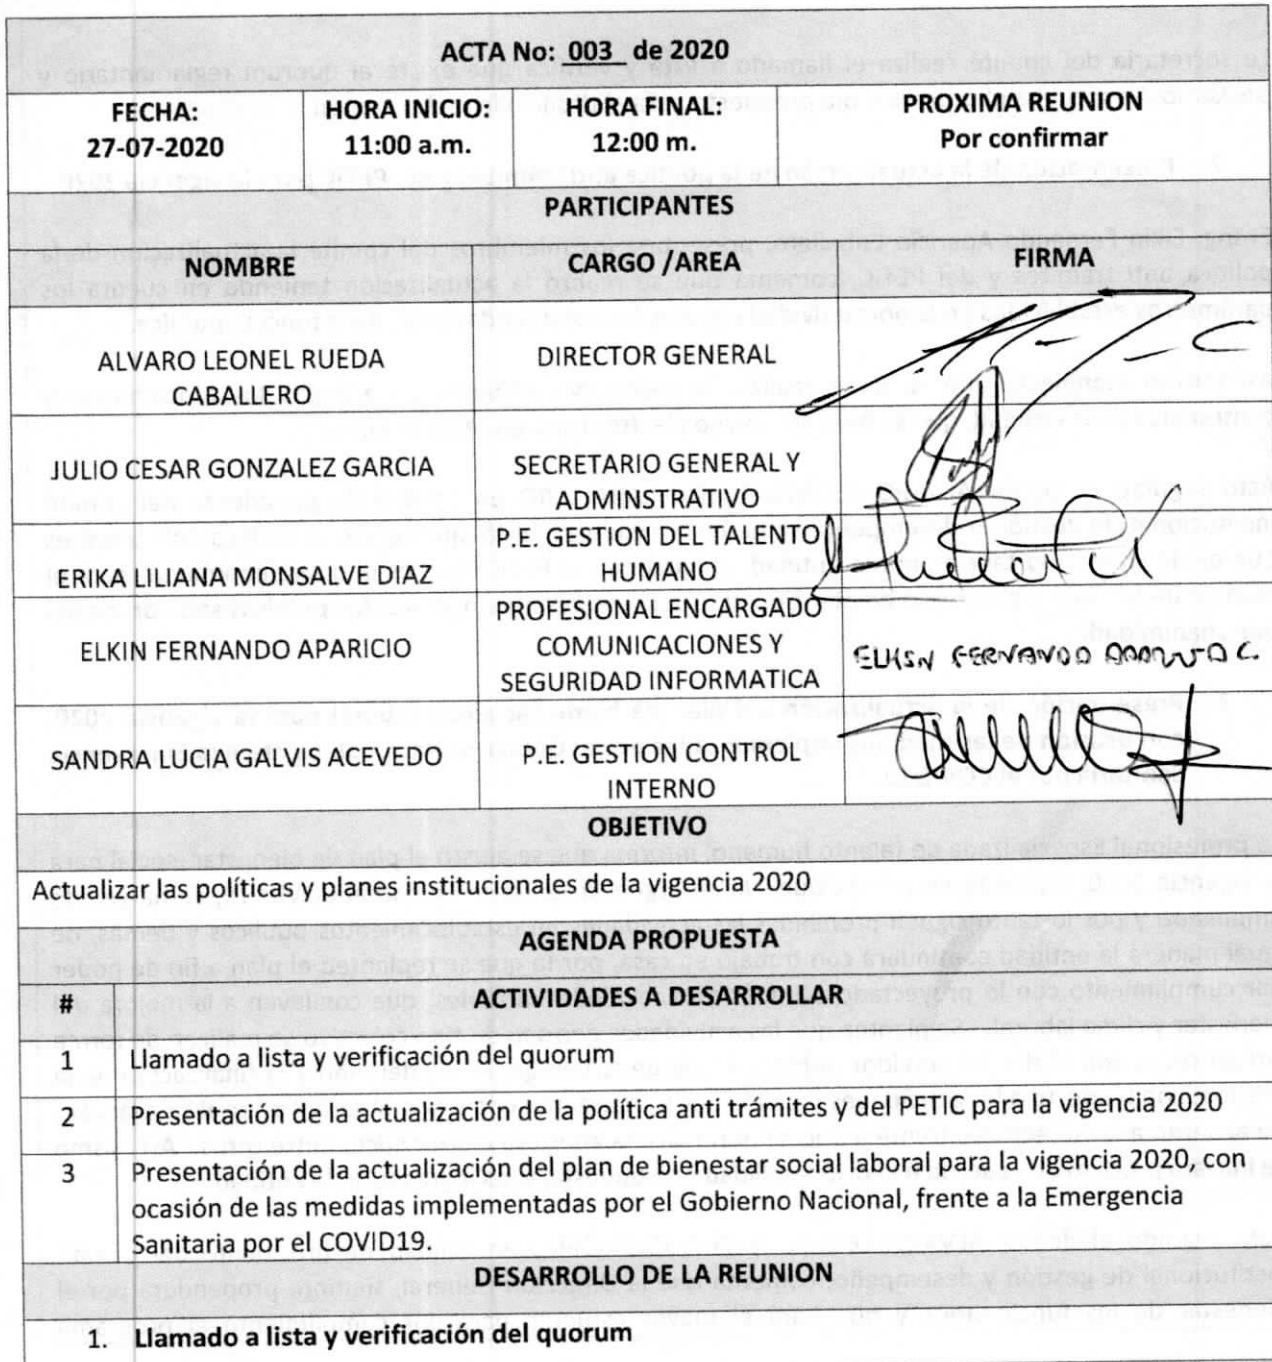 ACTA No: 003 de 2020
FECHA:
27-07-2020
HORA INICIO:
11:00 a.m.
HORA FINAL:
12:00 m.
PROXIMA REUNION
Por confirmar
PARTICIPANTES
NOMBRE
CARGO /AREA
FIRMA
ALVARO LEONEL RUEDA
CABALLERO
DIRECTOR GENERAL
JULIO CESAR GONZALEZ GARCIA
SECRETARIO GENERAL Y
ADMINSTRATIVO
ERIKA LILIANA MONSALVE DIAZ
P.E. GESTION DEL TALENTO
HUMANO
ELKIN FERNANDO APARICIO
PROFESIONAL ENCARGADO
COMUNICACIONES Y
SEGURIDAD INFORMATICA
ELKIN FERNANDO APARICIO C.
SANDRA LUCIA GALVIS ACEVEDO
P.E. GESTION CONTROL
INTERNO
OBJETIVO
Actualizar las políticas y planes institucionales de la vigencia 2020
AGENDA PROPUESTA
# ACTIVIDADES A DESARROLLAR
1 Llamado a lista y verificación del quorum
2 Presentación de la actualización de la política anti trámites y del PETIC para la vigencia 2020
3 Presentación de la actualización del plan de bienestar social laboral para la vigencia 2020, con
ocasión de las medidas implementadas por el Gobierno Nacional, frente a la Emergencia
Sanitaria por el COVID19.
DESARROLLO DE LA REUNION
1. Llamado a lista y verificación del quorum